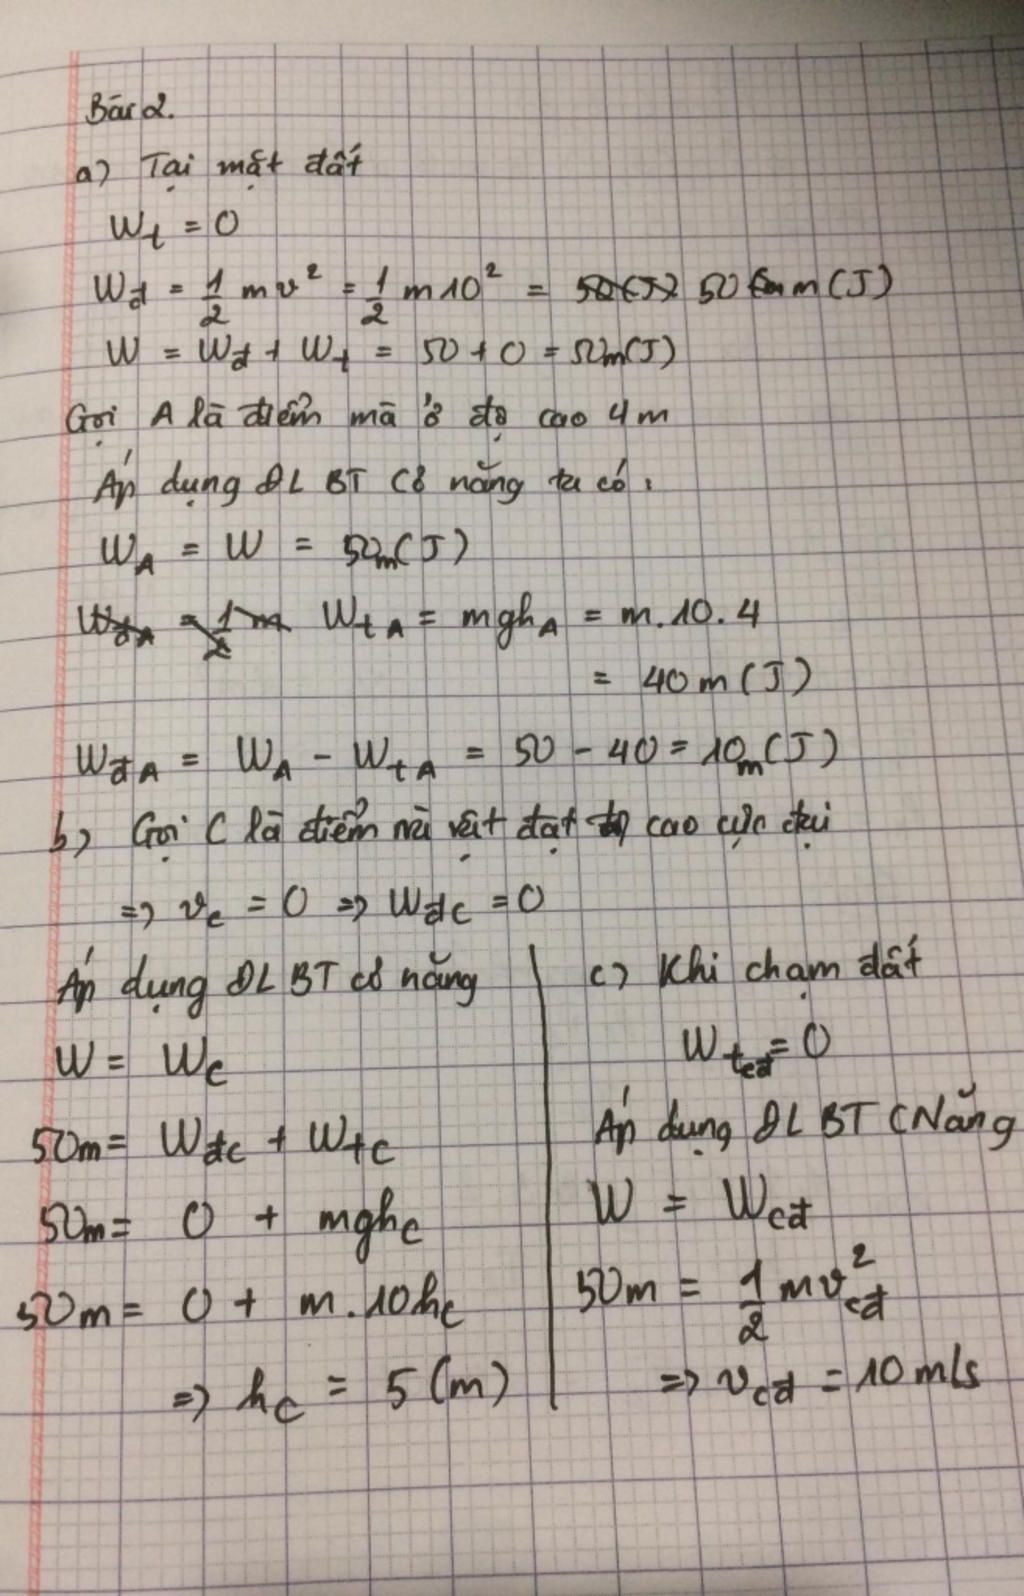 Bài 2.
a) Tại mặt đất
Wt = 0
Wđ = 1/2 mv² = 1/2 m10² = 50(J) 50 m (J)
W = Wđ + Wt = 50 + 0 = 50m(J)
Gọi A là điểm mà ở độ cao 4m
Áp dụng ĐL BT Cơ năng ta có:
WA = W = 50m(J)
WđA = 1/2 m WtA = mghA = m.10.4
= 40m (J)
WđA = WA - WtA = 50 - 40 = 10m(J)
b) Gọi C là điểm mà vật đạt độ cao cực đại
=> vc = 0 => Wđc = 0
Áp dụng ĐL BT cơ năng
W = Wc
50m = Wđc + Wtc
50m = 0 + mghc
50m = 0 + m.10hc
=> hc = 5 (m)
c) Khi chạm đất
Wtcđ = 0
Áp dụng ĐL BT CNăng
W = Wcđ
50m = 1/2 mv²cđ
=> vcđ = 10 m/s